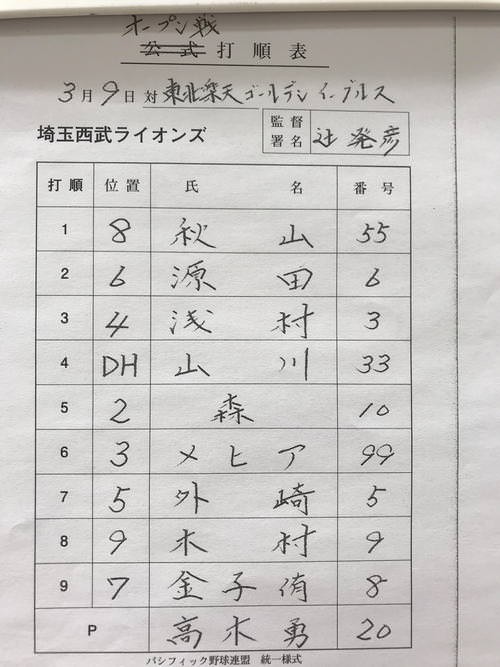 オープン戦
公式打順表
3月9日対東北楽天ゴールデンイーグルス
埼玉西武ライオンズ 監督署名 辻発彦
打順 位置 氏名 番号
1 8 秋山 55
2 6 源田 6
3 4 浅村 3
4 DH 山川 33
5 2 森 10
6 3 メヒア 99
7 5 外崎 5
8 9 木村 9
9 7 金子侑 8
P 高木勇 20
パシフィック野球連盟 統一様式